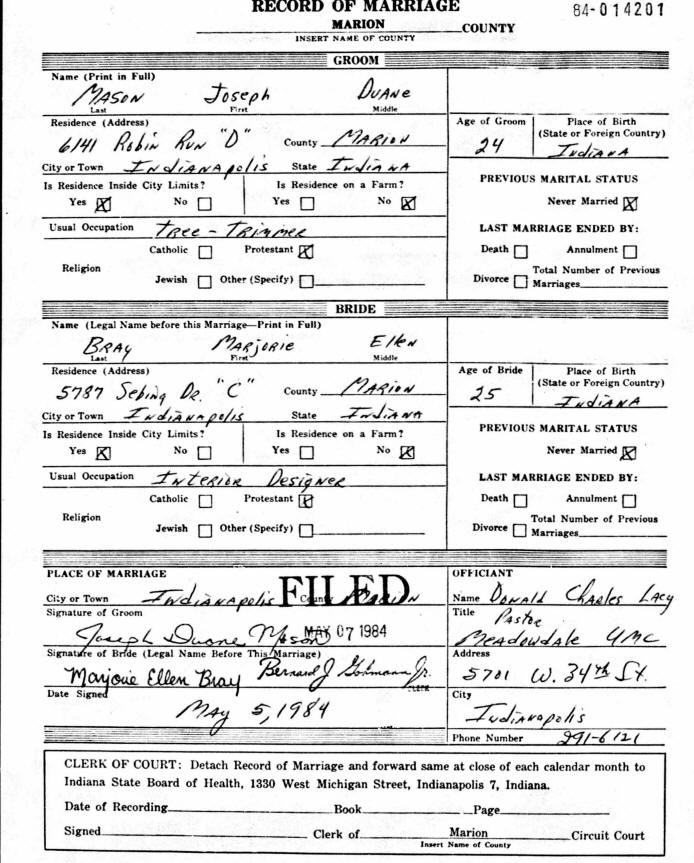 RECORD OF MARRIAGE
84-014201
MARION COUNTY
INSERT NAME OF COUNTY
GROOM
Name (Print in Full)
MASON Joseph DUANE
Last First Middle
Residence (Address)
6141 Robin Run "D" County MARION
City or Town INDIANAPOLIS State INDIANA
Is Residence Inside City Limits? Is Residence on a Farm?
Yes ☒ No ☐ Yes ☐ No ☒
Usual Occupation TREE-TRIMMER
Catholic ☐ Protestant ☒
Religion
Jewish ☐ Other (Specify) ☐
Age of Groom Place of Birth
(State or Foreign Country)
24 INDIANA
PREVIOUS MARITAL STATUS
Never Married ☒
LAST MARRIAGE ENDED BY:
Death ☐ Annulment ☐
Total Number of Previous
Divorce ☐ Marriages
BRIDE
Name (Legal Name before this Marriage—Print in Full)
BRAY MARJORIE Ellen
Last First Middle
Residence (Address)
5787 Sebing DR. "C" County MARION
City or Town INDIANAPOLIS State INDIANA
Is Residence Inside City Limits? Is Residence on a Farm?
Yes ☒ No ☐ Yes ☐ No ☒
Usual Occupation INTERIOR DESIGNER
Catholic ☐ Protestant ☒
Religion
Jewish ☐ Other (Specify) ☐
Age of Bride Place of Birth
(State or Foreign Country)
25 INDIANA
PREVIOUS MARITAL STATUS
Never Married ☒
LAST MARRIAGE ENDED BY:
Death ☐ Annulment ☐
Total Number of Previous
Divorce ☐ Marriages
PLACE OF MARRIAGE
City or Town Indianapolis County MARION
FILED
Signature of Groom
Joseph Duane Mason
MAY 07 1984
Signature of Bride (Legal Name Before This Marriage)
Marjorie Ellen Bray
Bernard J Gohmann Jr.
CLERK
Date Signed
MAY 5, 1984
OFFICIANT
Name DONALD Charles Lacy
Title
Pastor
MEADOWDALE UMC
Address
5701 W. 34th St.
City
Indianapolis
Phone Number 291-6121
CLERK OF COURT: Detach Record of Marriage and forward same at close of each calendar month to
Indiana State Board of Health, 1330 West Michigan Street, Indianapolis 7, Indiana.
Date of Recording Book Page
Signed Clerk of Marion Circuit Court
Insert Name of County